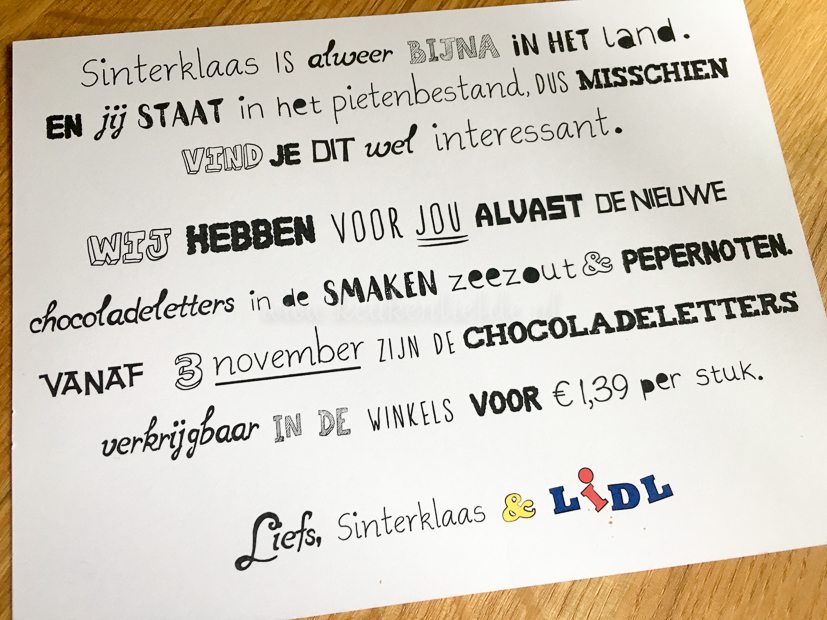 Sinterklaas IS alweer BIJNA iN HET land.
EN jij STAAT in het pietenbestand, DUS MISSCHIEN
VIND JE DIT wel interessant.
WIJ HEBBEN VOOR JOU ALVAST DE NIEUWE
chocoladeletters in de SMAKEN zeezout & PEPERNOTEN.
VANAF 3 november ZIJN DE CHOCOLADELETTERS
verkrijgbaar IN DE WINKELS VOOR €1,39 per stuk.
Liefs, Sinterklaas & LiDL